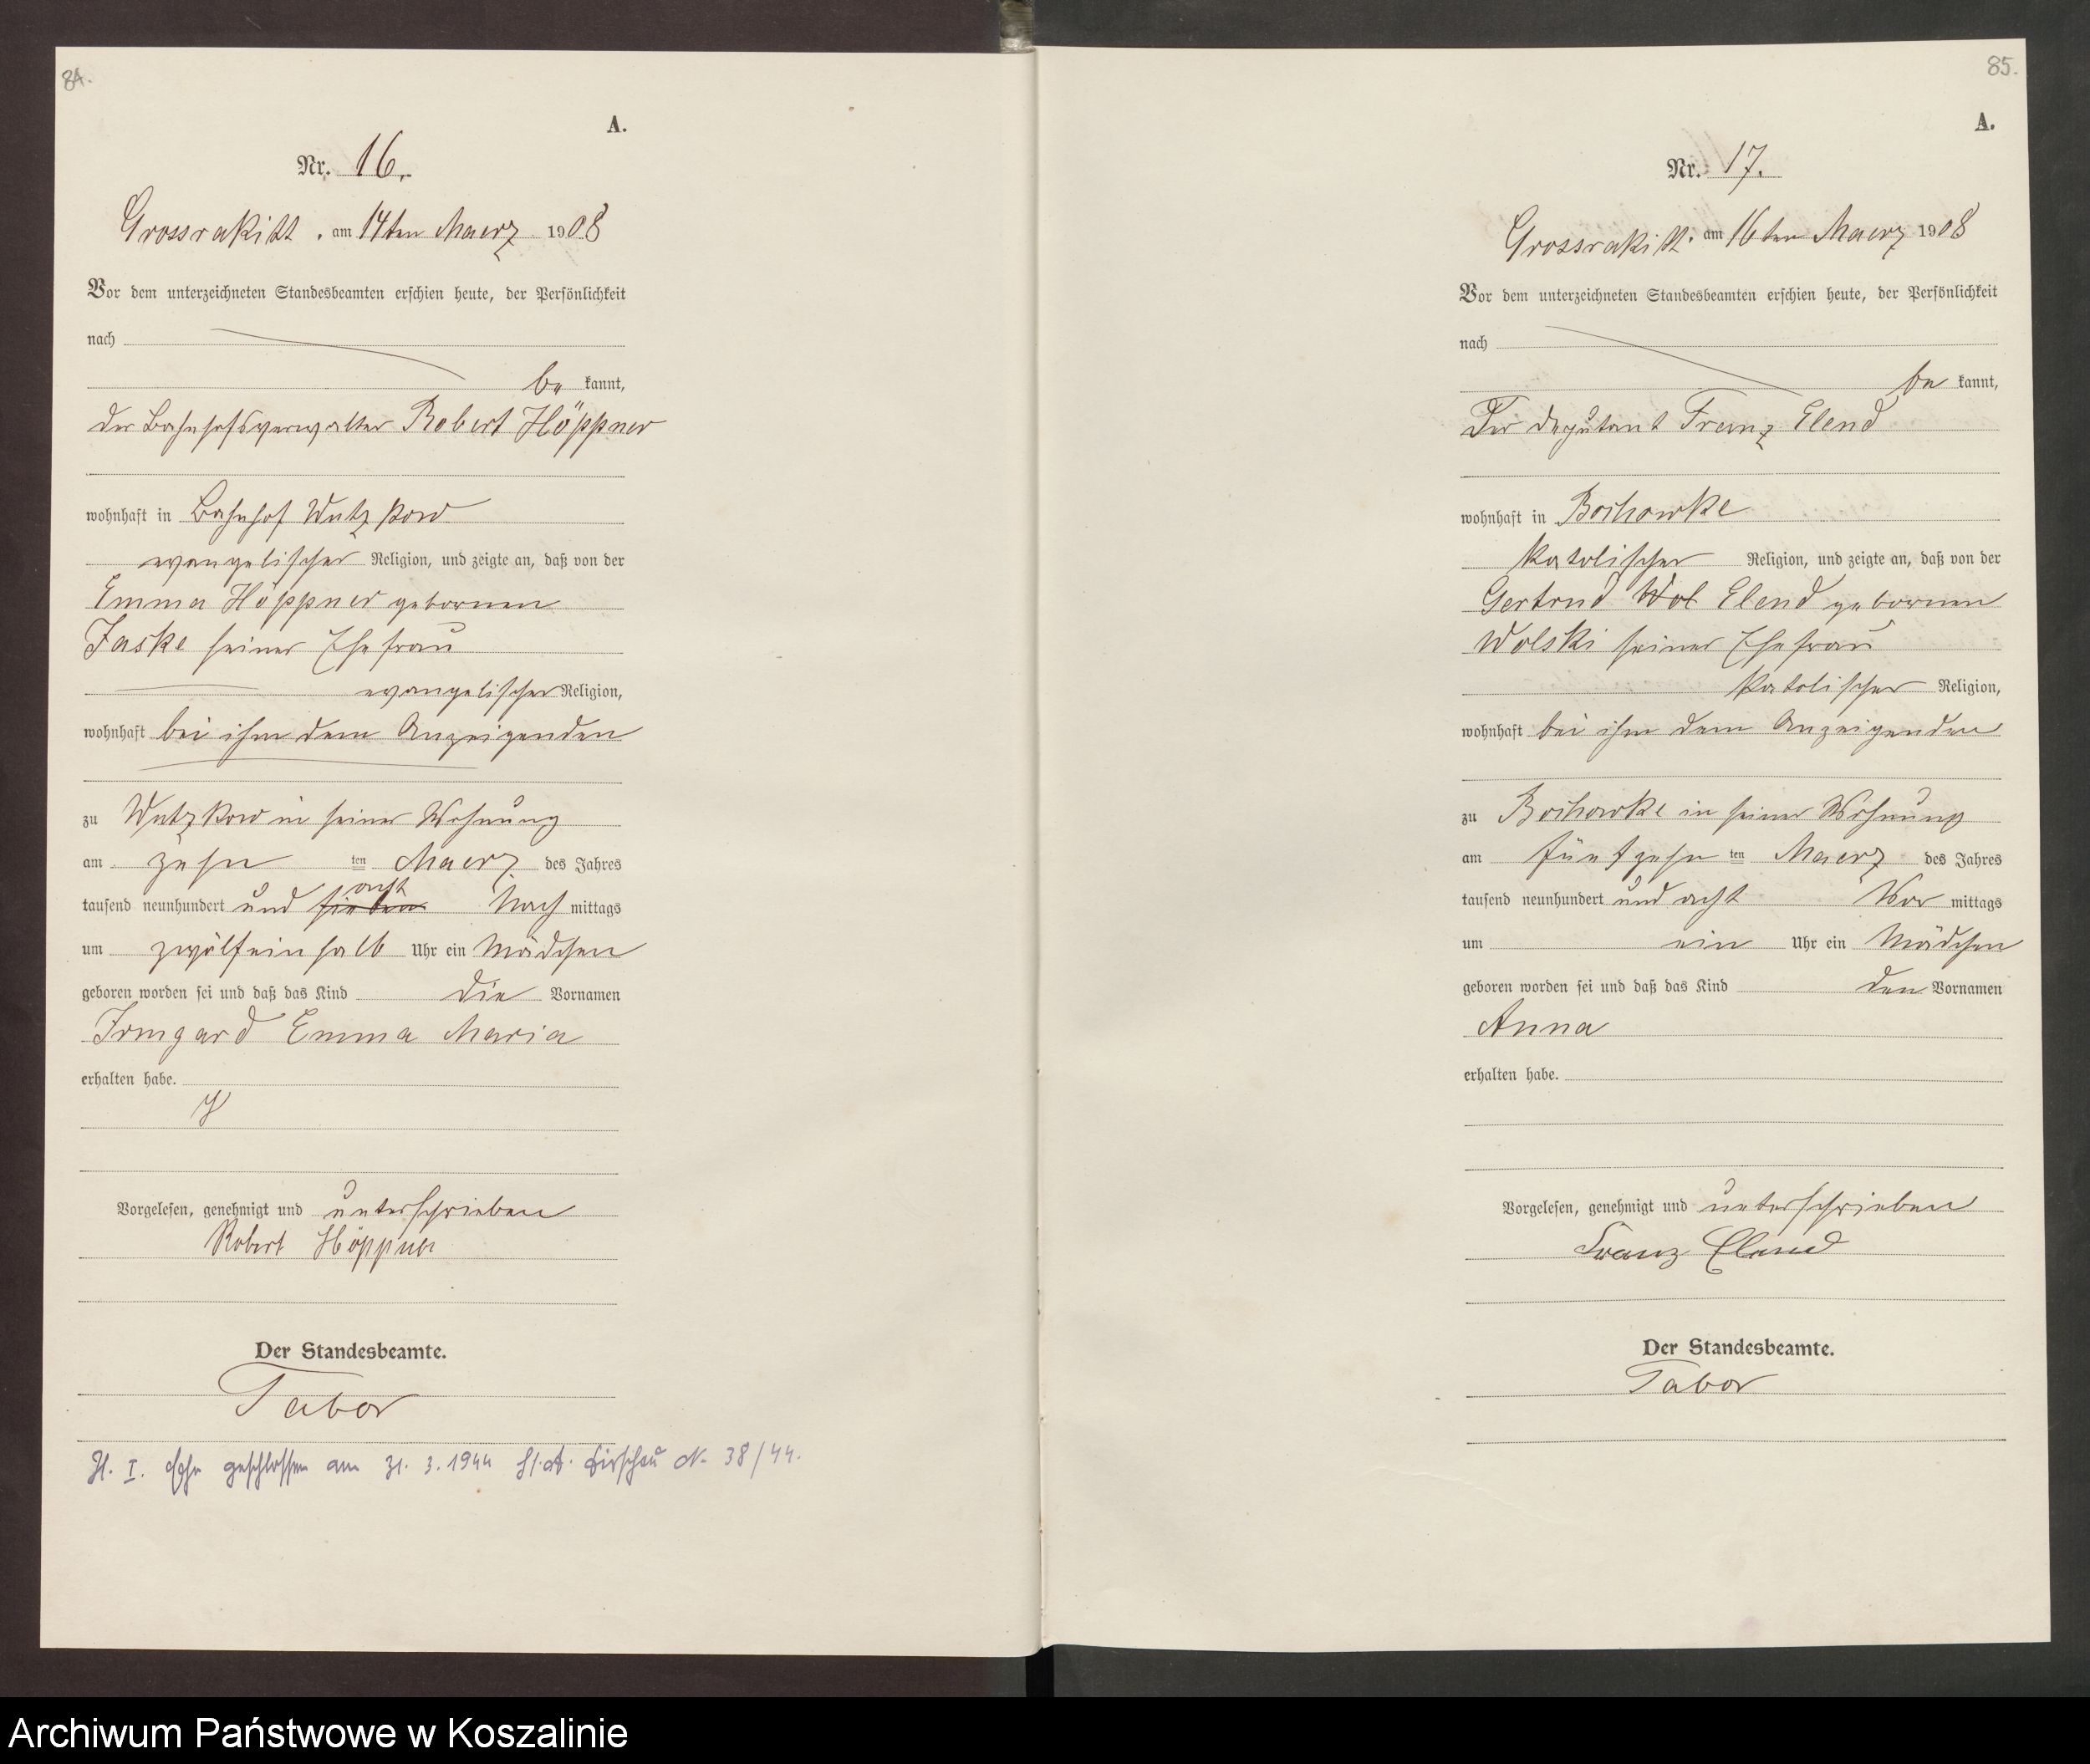 84.
A.
Nr. 16.
Grossrakitt, am 14ten Maerz 1908
Vor dem unterzeichneten Standesbeamten erschien heute, der Persönlichkeit
nach
be kannt,
der Bahnhofsverwalter Robert Höppner
wohnhaft in Bahnhof Wutzkow
evangelischer Religion, und zeigte an, daß von der
Emma Höppner gebornen
Jaske seiner Ehefrau
evangelischer Religion,
wohnhaft bei ihm dem Anzeigenden
zu Wutzkow in seiner Wohnung
am zehn ten Maerz des Jahres
tausend neunhundert und sieben acht Nach mittags
um zwölfeinhalb Uhr ein Mädchen
geboren worden sei und daß das Kind die Vornamen
Irmgard Emma Maria
erhalten habe.
Vorgelesen, genehmigt und unterschrieben
Robert Höppner
Der Standesbeamte.
Tabor
H. I. Ehe geschlossen am 31. 3. 1944 St.A. Dirschau N. 38/44.
85.
A.
Nr. 17.
Grossrakitt. am 16ten Maerz 1908
Vor dem unterzeichneten Standesbeamten erschien heute, der Persönlichkeit
nach
be kannt,
Der Deputant Franz Elend
wohnhaft in Bochowke
katolischer Religion, und zeigte an, daß von der
Gertrud Wol Elend gebornen
Wolski seiner Ehefrau
katolischer Religion,
wohnhaft bei ihm dem Anzeigenden
zu Bochowke in seiner Wohnung
am fünfzehn ten Maerz des Jahres
tausend neunhundert und acht Vor mittags
um ein Uhr ein Mädchen
geboren worden sei und daß das Kind den Vornamen
Anna
erhalten habe.
Vorgelesen, genehmigt und unterschrieben
Franz Elend
Der Standesbeamte.
Tabor
Archiwum Państwowe w Koszalinie